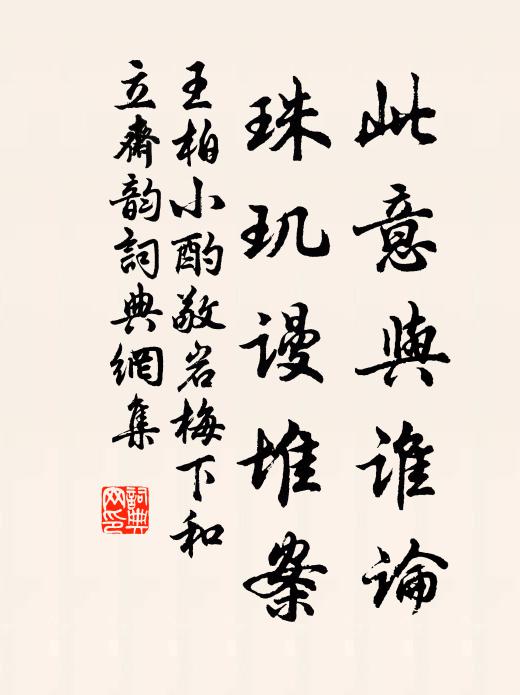 此意與誰論
珠玑謾堆案
王柏小酌敬岩梅下和
立齋韵詞典網集
詞典
网印